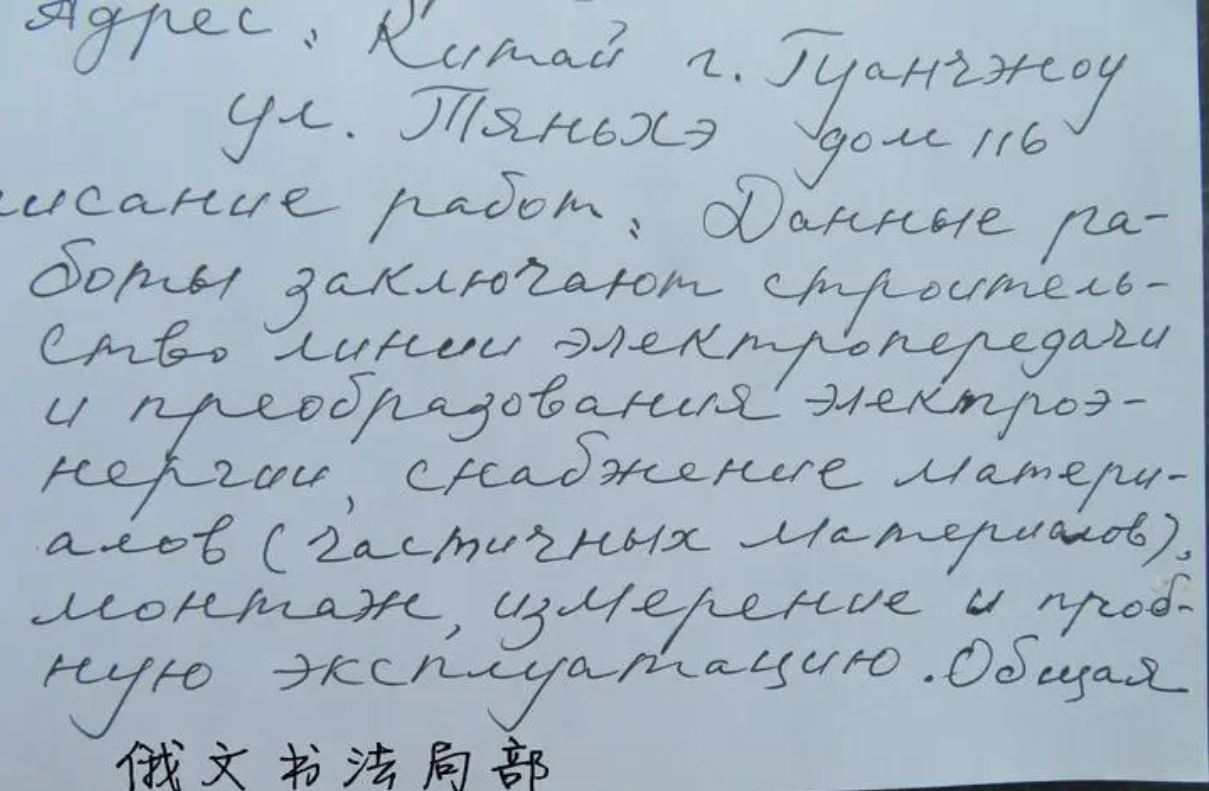 Адрес: Китай г. Гуанчжоу
ул. Тяньхэ дом 116
исание работ: Данные ра-
боты заключают строитель-
ство линии электропередачи
и преобразования электроэ-
нергии, снабжение матери-
алов (частичных материалов),
монтаж, измерение и проб-
ную эксплуатацию. Общая
俄文书法局部